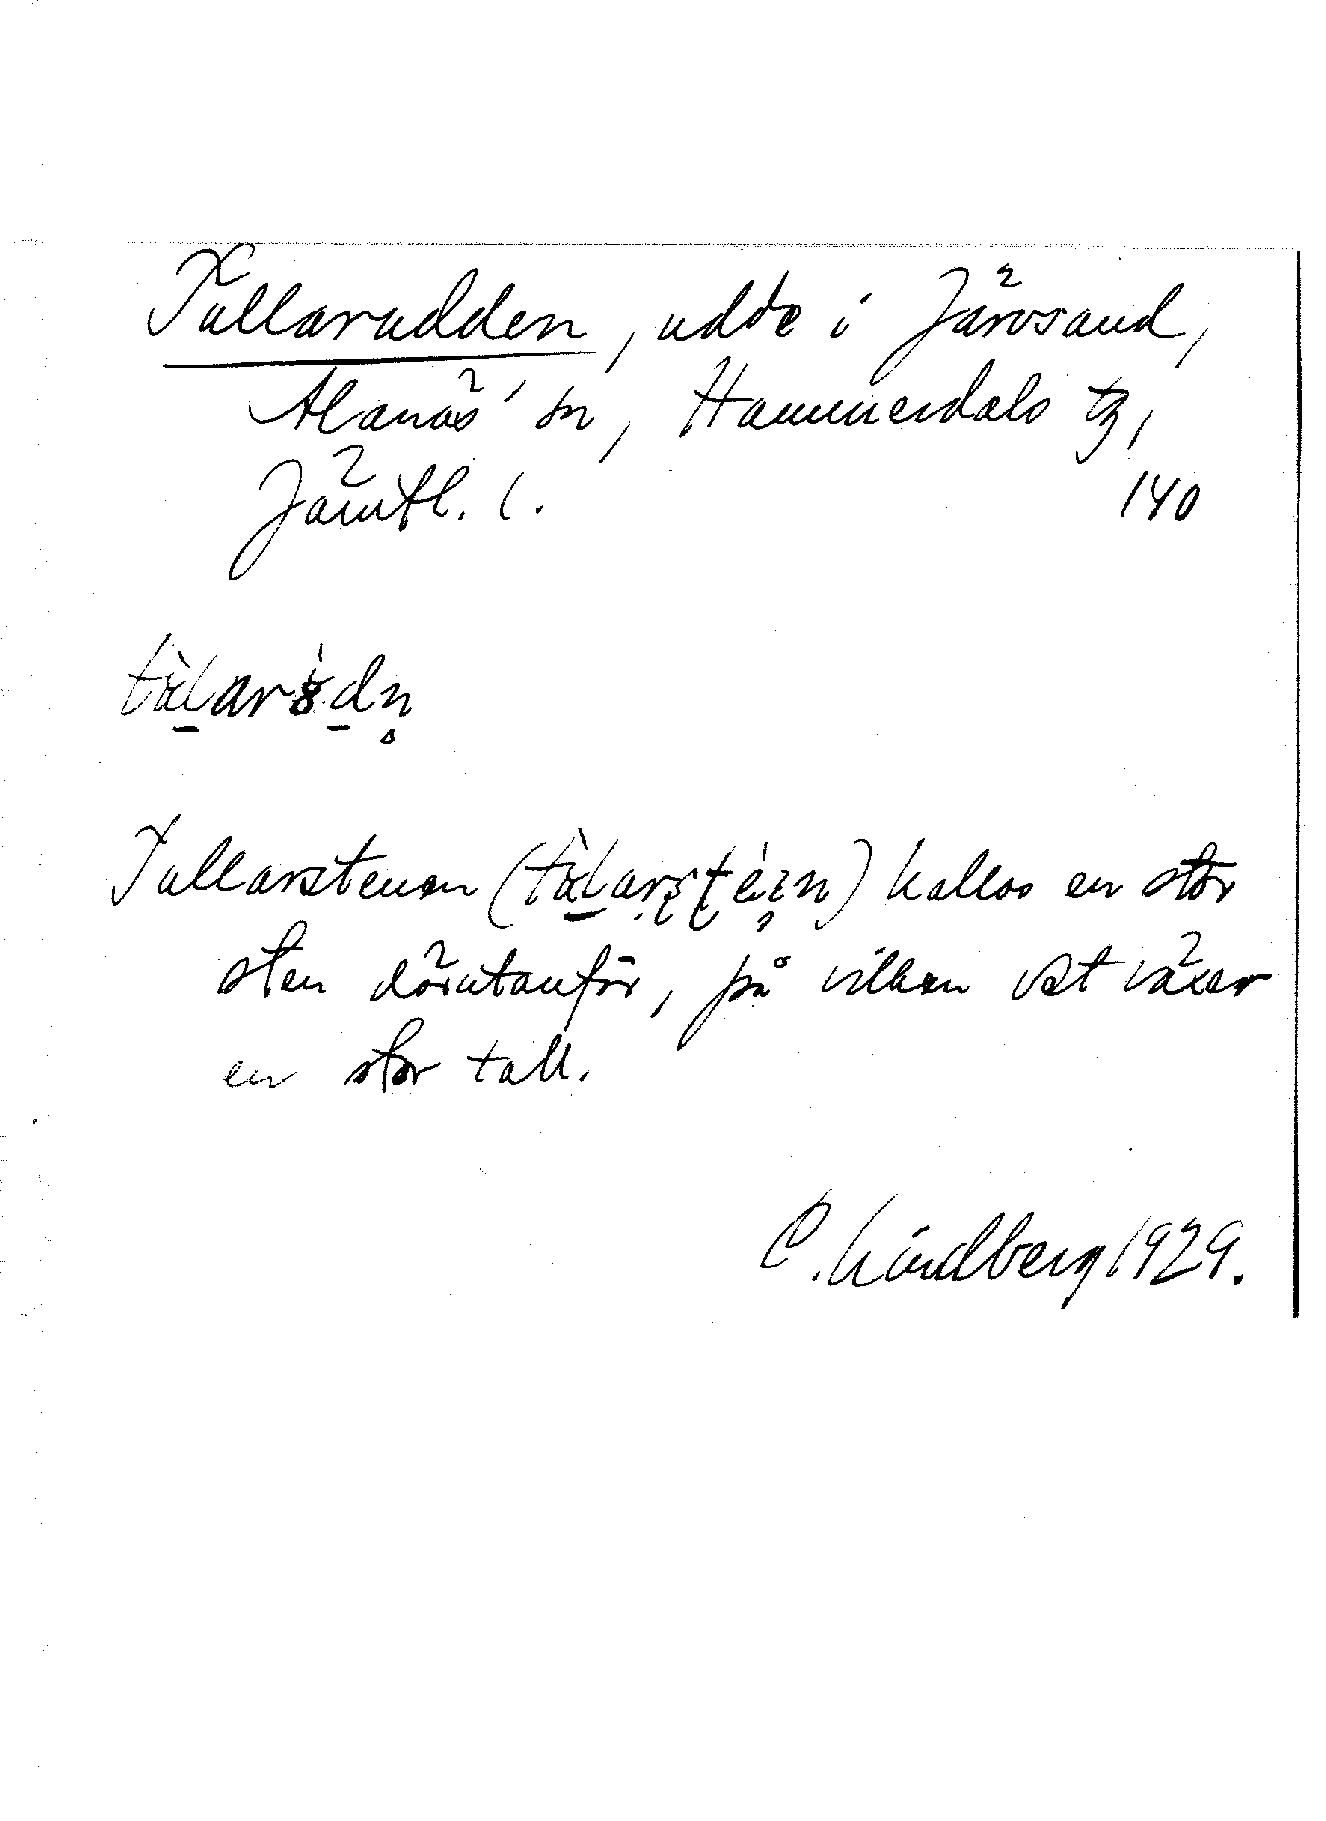 Tallarudden, udde i Järvsand,
Alanäs' sn, Hammerdals tg,
Jämtl. l. 140
tàl̠arȣ́d̠n̥
Tallarstenen (tàl̠arşţéi̩n) kallas en stor
sten därutanför, på vilken det växer
en stor tall.
C. Lindberg 1929.